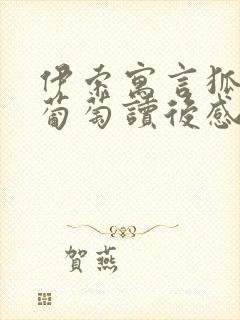 伊索寓言狐
葡萄讀後感
賀燕